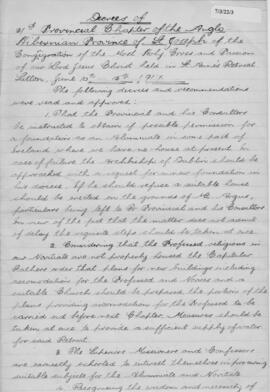 Decrees of
21st Provincial Chapter of the Anglo
Hibernian Province of St Joseph of the
Congregation of the Most Holy Cross and Passion
of our Lord Jesus Christ held in St Anne's Retreat
Sutton, June 13th 1911.
The following decrees and recommendations
were read and approved:
1. That the Provincial and his Consultors
be instructed to obtain if possible permission for
a foundation as an Alumniate in some part of
Ireland where we have no house at present. In
case of failure the Archbishop of Dublin should be
approached with a request for a new foundation in
his diocese. If he should refuse a suitable house
should be erected on the grounds of Mt Argus,
particulars being left to Fr Provincial and his Consultors
In view of the fact that the matter does not admit
of delay the requisite steps should be taken at once.
2. Considering that the Professed religious in
our Novitiate are not properly housed the Capitular
Fathers order that plans for new buildings including
accomodation for the Professed and Novices and a
suitable Church should be prepared, the portion of the
plans providing accomodation for the Professed to be
carried out before next Chapter. Measures should be
taken at once to provide a sufficient supply of water
for said Retreat.
3. The Superiors Missioners and Confessors
are earnestly exhorted to interest themselves in procuring
suitable subjects for the Alumniate and Novitiate.
4. Recognising the wisdom and necessity of